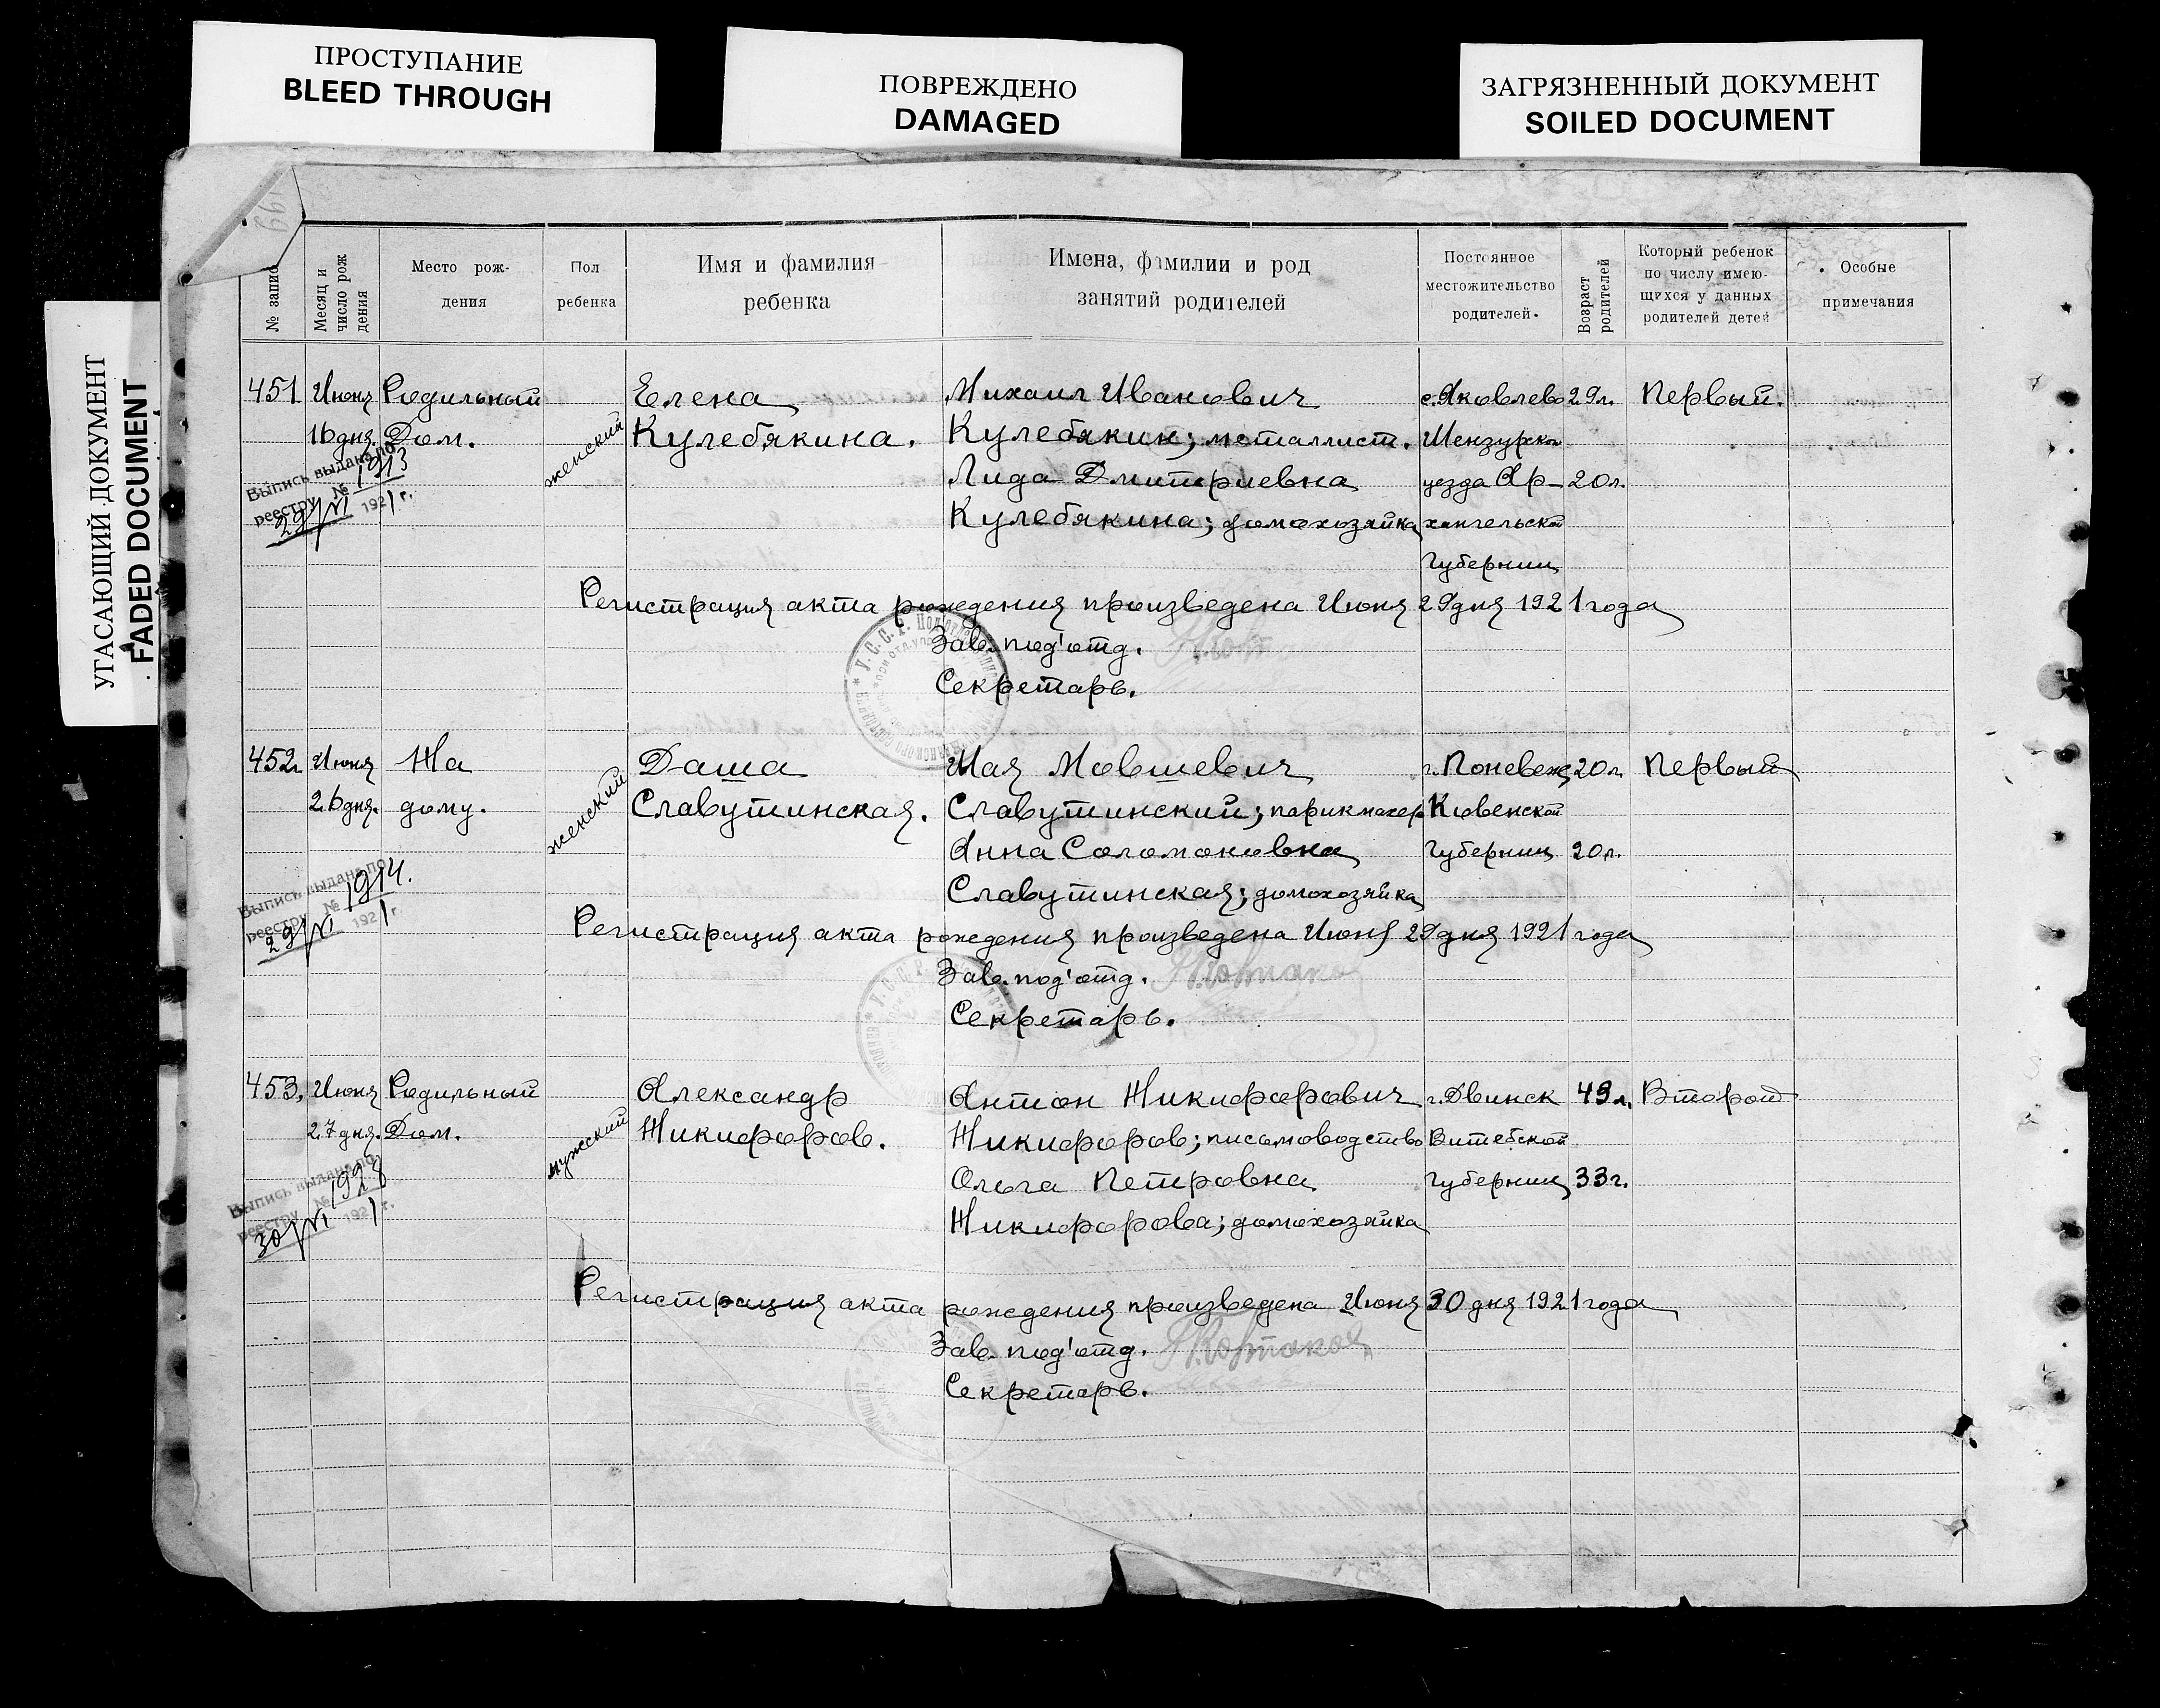 ПРОСТУПАНИЕ
BLEED THROUGH
ПОВРЕЖДЕНО
DAMAGED
ЗАГРЯЗНЕННЫЙ ДОКУМЕНТ
SOILED DOCUMENT
УГАСАЮЩИЙ ДОКУМЕНТ
FADED DOCUMENT
№ запис
Месяц и число рож дения
Место рож-
дения
Пол
ребенка
Имя и фамилия
ребенка
Имена, фамилии и род
занятий родителей
Постоянное
местожительство
родителей.
Возраст
родителей
Который ребенок
по числу имею-
щихся у данных
родителей детей
Особые
примечания
451 Июня Родильный Елена Михаил Иванович с. Яковлево 29 л. Первый.
16 дня. Дом. женский Кулебякина. Кулебякин; металлист. Шензурской
Выпись выдана по
реестру № 1913
29/VI 1921 г.
Лида Дмитриевна уезда Ар- 20 л.
Кулебякина; домохозяйка хангельской
Губернии
Регистрация акта рождения произведена Июня 29 дня 1921 года
Зав. под'отд.
Секретарь.
452 Июня На Даша Шая Мовшевич г. Поневеж, 20 л. Первый
26 дня. дому. женский Славутинская. Славутинский; парикмахер Ковенской
Анна Соломоновна Губернии 20 л.
Выпись выдана по
реестру № 1914.
29/VI 1921 г.
Славутинская; домохозяйка
Регистрация акта рождения произведена Июня 29 дня 1921 года
Зав. под'отд.
Секретарь.
453. Июня Родильный Александр Антон Никифорович г. Двинск 49 л. Второй
27 дня. Дом. мужский Никифоров. Никифоров; письмоводство Витебской
Выпись выдана по
реестру № 1928
30/VI 1921 г.
Ольга Петровна Губернии 33 г.
Никифорова; домохозяйка
Регистрация акта рождения произведена Июня 30 дня 1921 года
Зав. под'отд.
Секретарь.